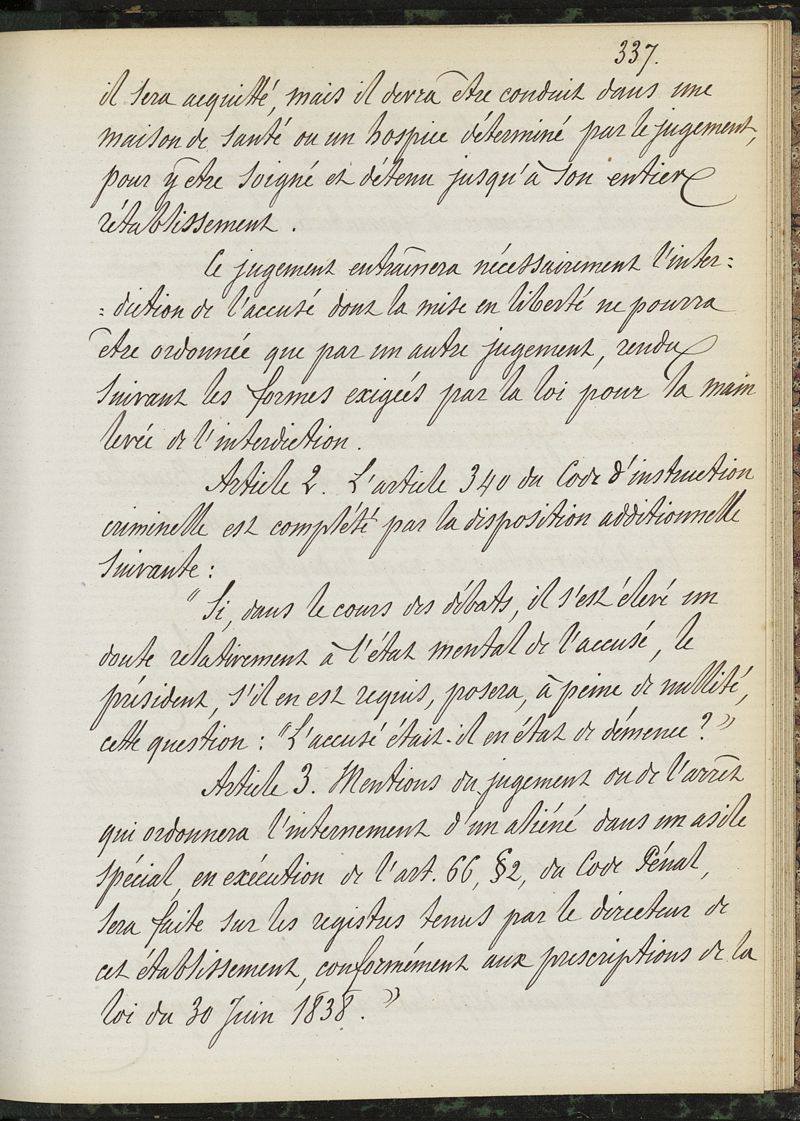 337.
il sera acquitté, mais il devra être conduit dans une
maison de santé ou un hospice déterminé par le jugement,
pour y être soigné et détenu jusqu'à son entier
rétablissement.
Ce jugement entraînera nécessairement l'inter=
=diction de l'accusé dont la mise en liberté ne pourra
être ordonnée que par un autre jugement, rendu
suivant les formes exigées par la loi pour la main
levée de l'interdiction.
Article 2. L'article 340 du Code d'instruction
criminelle est complété par la disposition additionnelle
suivante :
"Si, dans le cours des débats, il s'est élevé un
doute relativement à l'état mental de l'accusé, le
président, s'il en est requis, posera, à peine de nullité,
cette question : "L'accusé était-il en état de démence ?"
Article 3. Mentions du jugement ou de l'arrêt
qui ordonnera l'internement d'un aliéné dans un asile
spécial, en exécution de l'art. 66, §2, du Code Pénal,
sera faite sur les registres tenus par le directeur de
cet établissement, conformément aux prescriptions de la
loi du 30 Juin 1838."